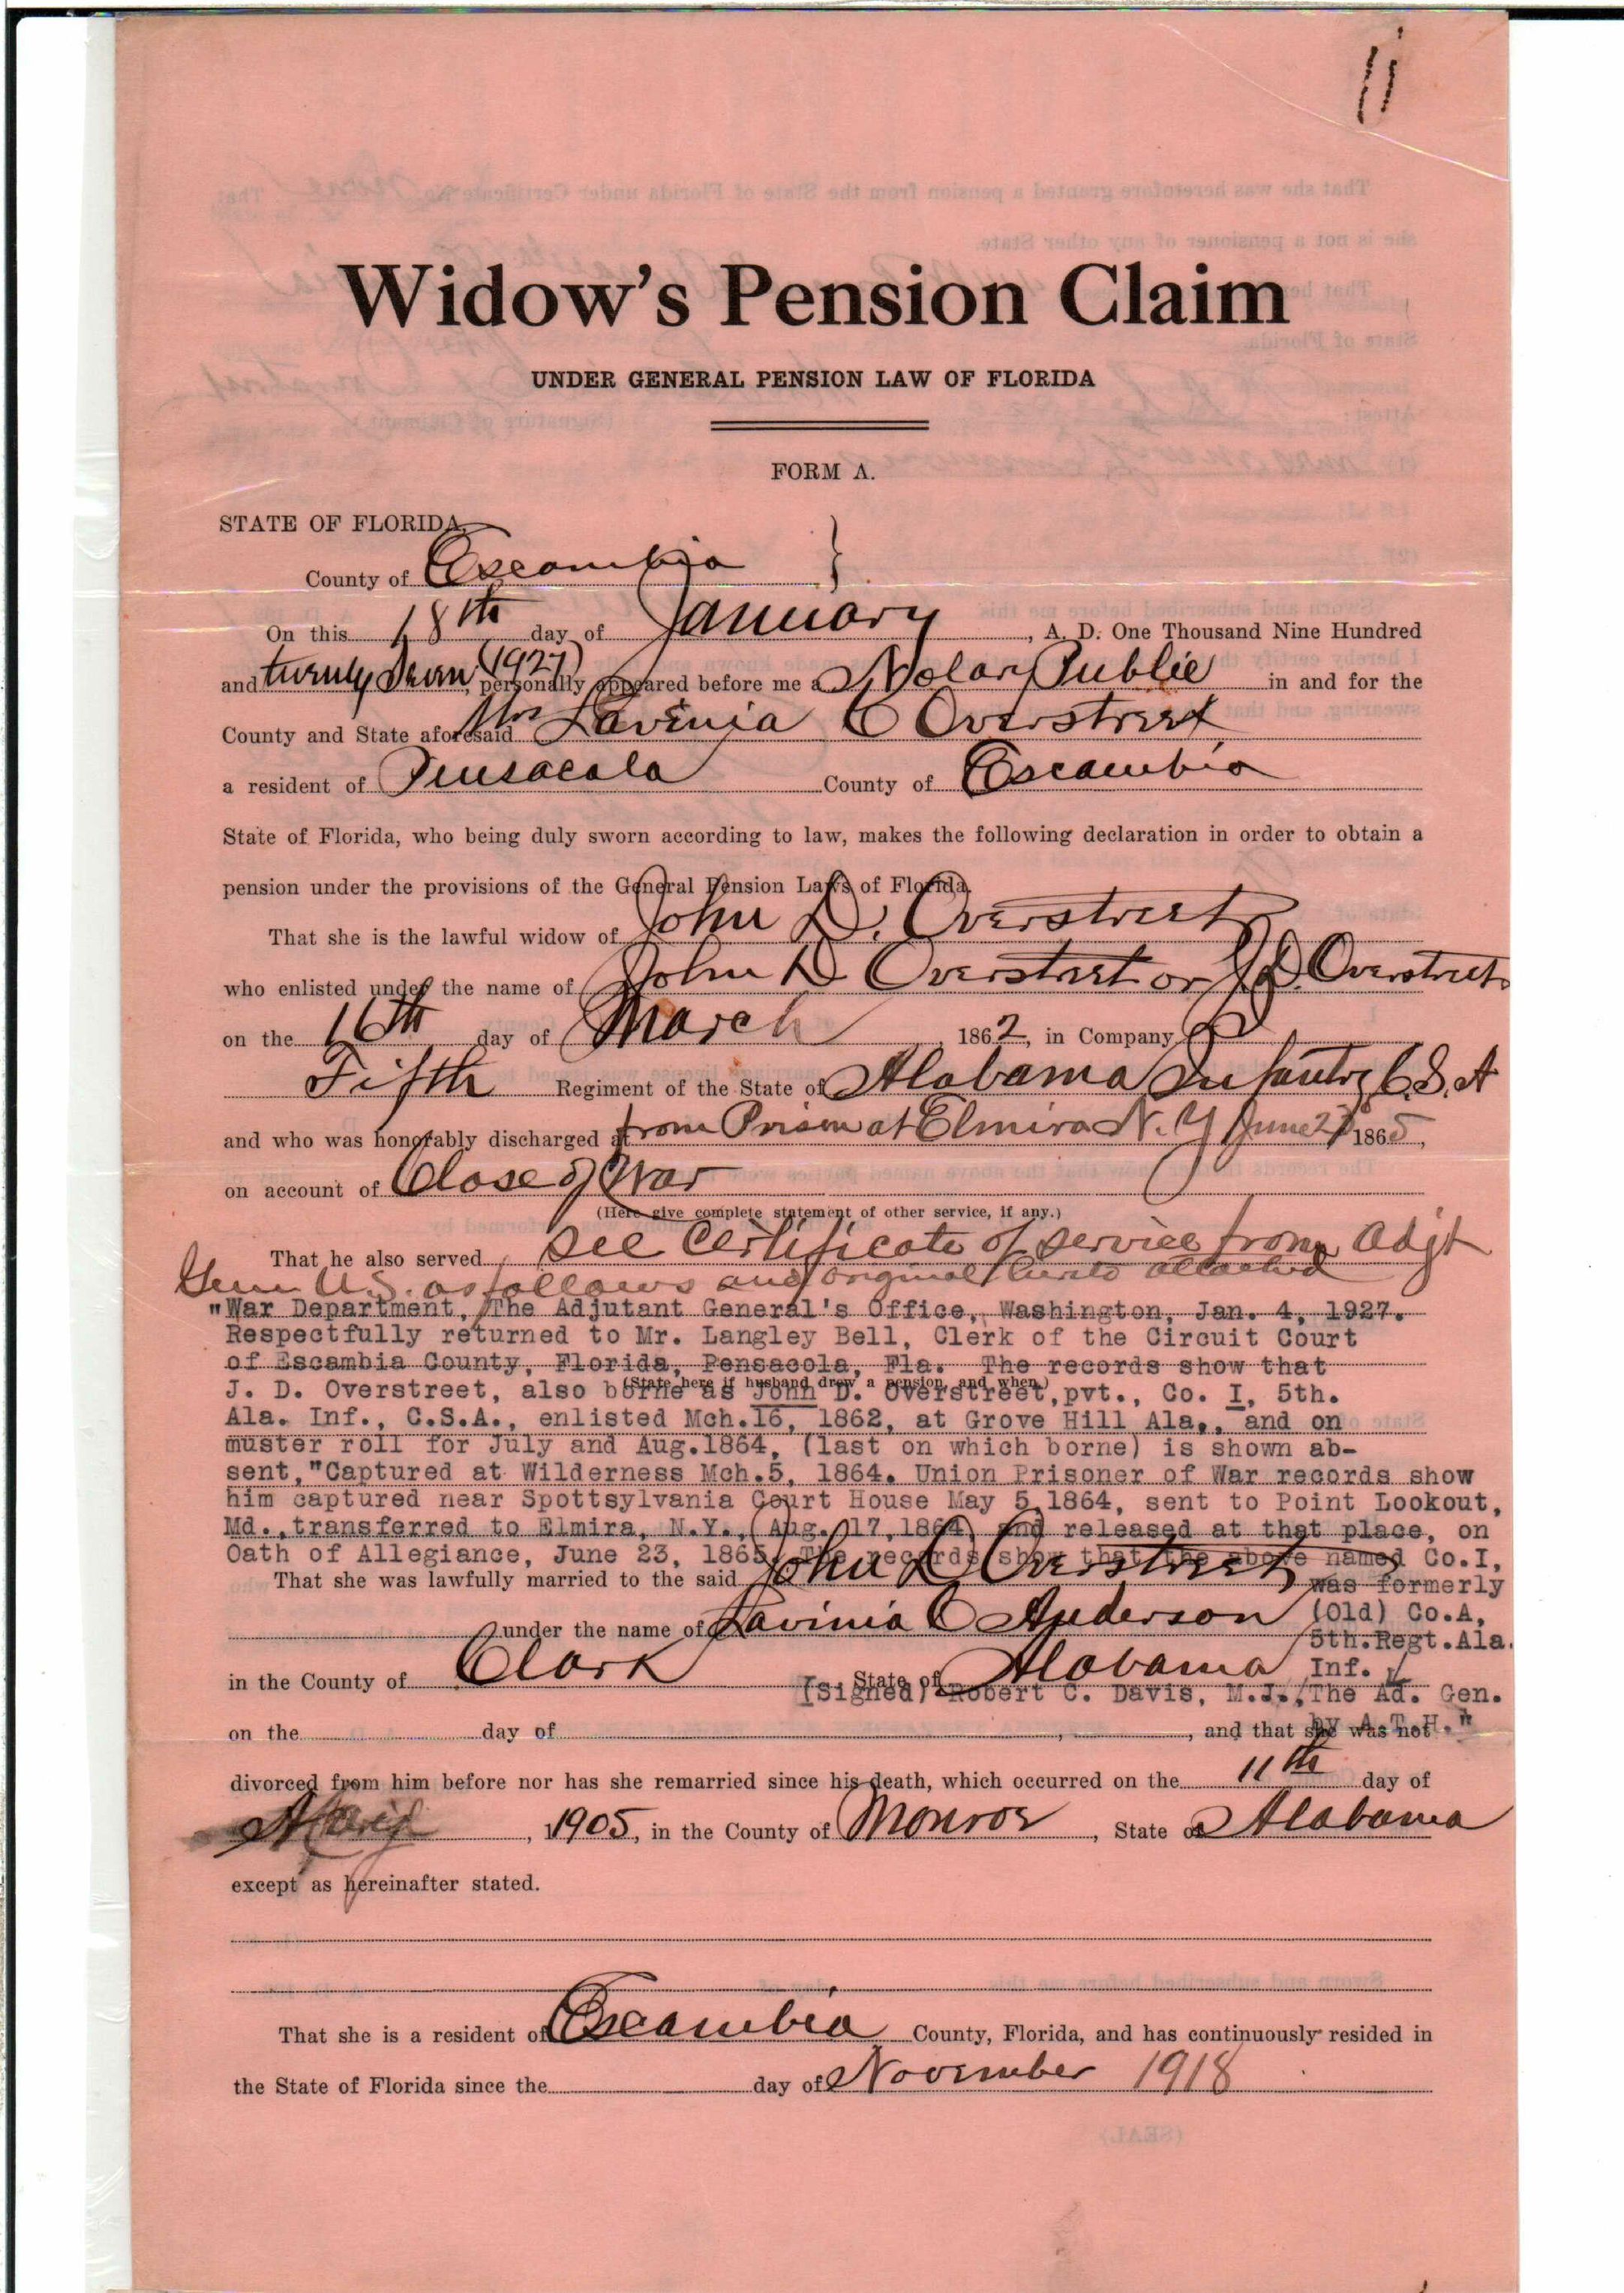 11
Widow's Pension Claim
UNDER GENERAL PENSION LAW OF FLORIDA
FORM A.
STATE OF FLORIDA,
County of Escambia }
On this 18th day of January, A. D. One Thousand Nine Hundred
and twenty seven (1927), personally appeared before me a Notary Public in and for the
County and State aforesaid Mrs Lavinia C Overstreet
a resident of Pensacola County of Escambia
State of Florida, who being duly sworn according to law, makes the following declaration in order to obtain a
pension under the provisions of the General Pension Laws of Florida.
That she is the lawful widow of John D. Overstreet
who enlisted under the name of John D Overstreet or J D. Overstreet
on the 16th day of March 1862, in Company I
Fifth Regiment of the State of Alabama Infantry C.S.A
and who was honorably discharged at from Prison at Elmira N.Y June 23 1865,
on account of Close of War
(Here give complete statement of other service, if any.)
That he also served see certificate of service from Adjt
Genr U.S. as follows and original hereto attached
"War Department, The Adjutant General's Office, Washington, Jan. 4, 1927.
Respectfully returned to Mr. Langley Bell, Clerk of the Circuit Court
of Escambia County, Florida, Pensacola, Fla. The records show that
(State here if husband drew a pension, and when.)
J. D. Overstreet, also borne as John D. Overstreet,pvt., Co. I, 5th.
Ala. Inf., C.S.A., enlisted Mch.16, 1862, at Grove Hill Ala., and on
muster roll for July and Aug.1864, (last on which borne) is shown ab-
sent,"Captured at Wilderness Mch.5, 1864. Union Prisoner of War records show
him captured near Spottsylvania Court House May 5,1864, sent to Point Lookout,
Md.,transferred to Elmira, N.Y., Aug. 17,1864, and released at that place, on
Oath of Allegiance, June 23, 1865. The records show that the above named Co.I,
was formerly
(Old) Co.A,
5th.Regt.Ala.
Inf.
[Signed) Robert C. Davis, M.J., The Ad. Gen.
by A.T.H."
That she was lawfully married to the said John D Overstreet
under the name of Lavinia C Anderson
in the County of Clark State of Alabama
on the day of , , and that she was not
divorced from him before nor has she remarried since his death, which occurred on the 11th day of
, 1905, in the County of Monroe, State of Alabama
except as hereinafter stated.
That she is a resident of Escambia County, Florida, and has continuously resided in
the State of Florida since the day of November 1918